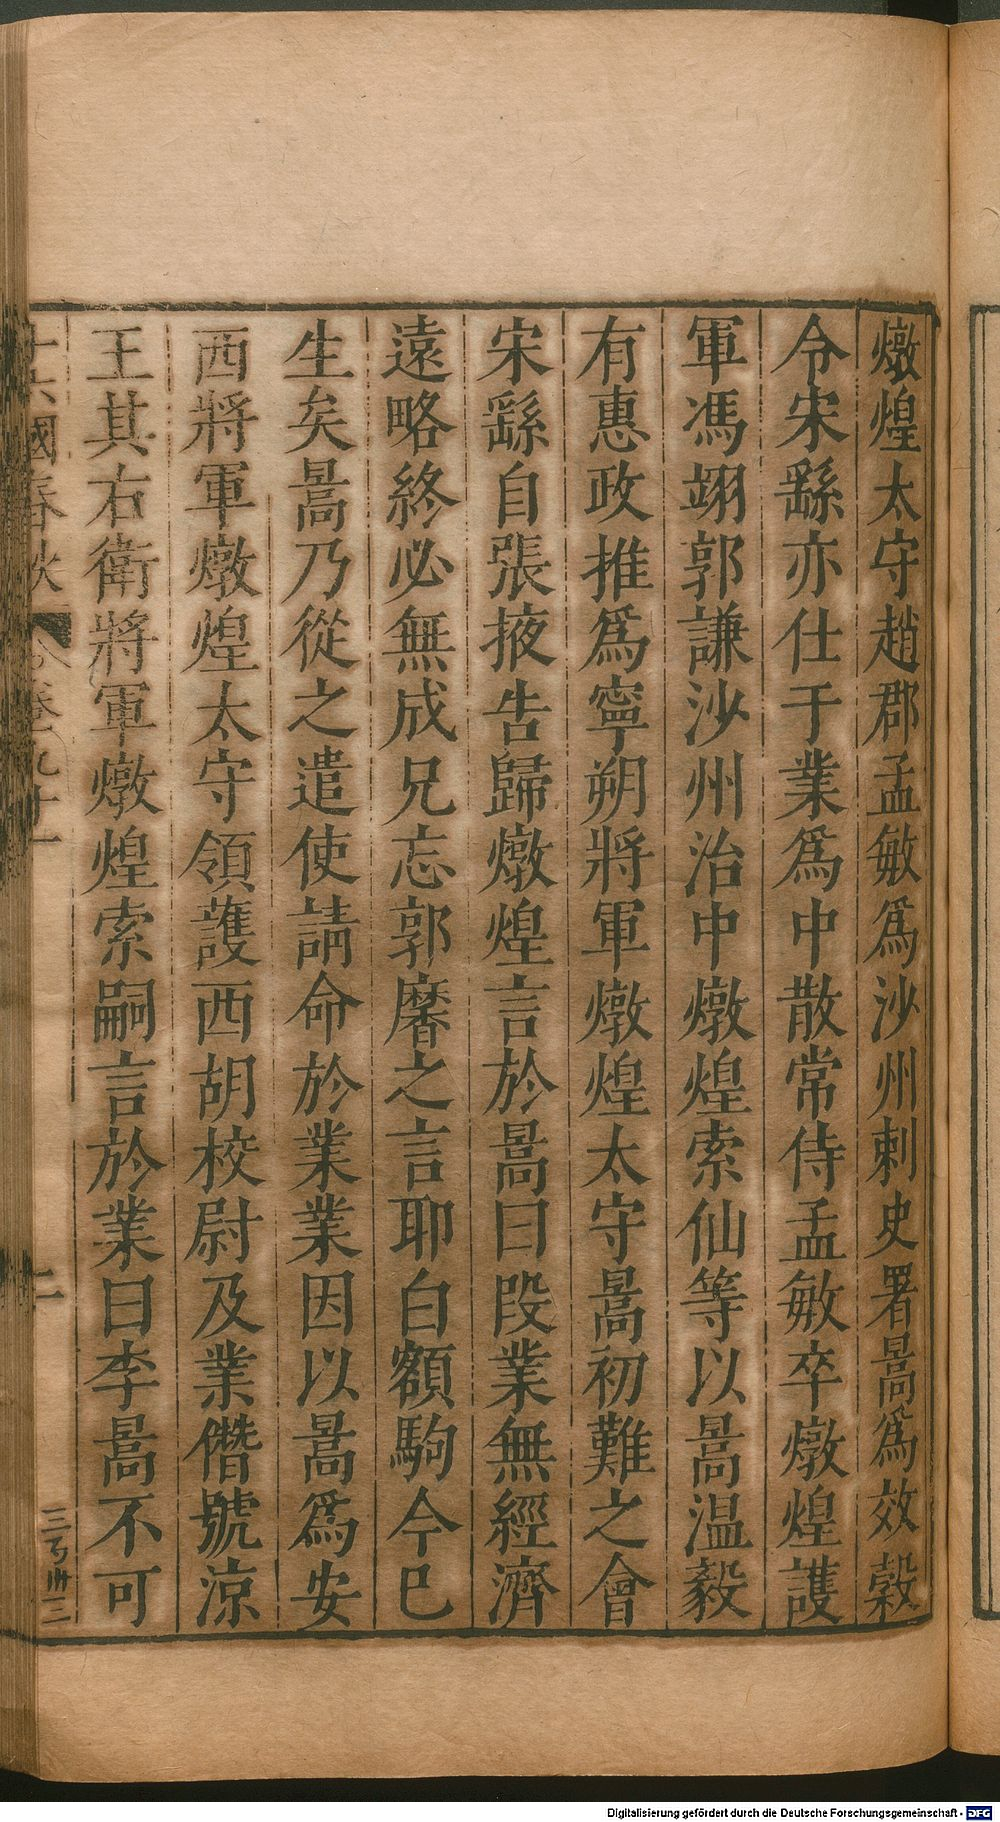 燉煌太守趙郡孟敏為沙州刺史署暠為效穀
令宋繇亦仕于業為中散常侍孟敏卒燉煌護
軍馮翊郭謙沙州治中燉煌索仙等以暠温毅
有惠政推為寧朔將軍燉煌太守暠初難之會
宋繇自張掖告歸燉煌言於暠曰段業無經濟
遠略終必無成兄忘郭黁之言耶白額駒今巳
生矣暠乃從之遣使請命於業業因以暠為安
西將軍燉煌太守領護西胡校尉及業僭號涼
王其右衛將軍燉煌索嗣言於業曰李暠不可
十六國春秋 卷九十一 二
Digitalisierung gefördert durch die Deutsche Forschungsgemeinschaft - DFG